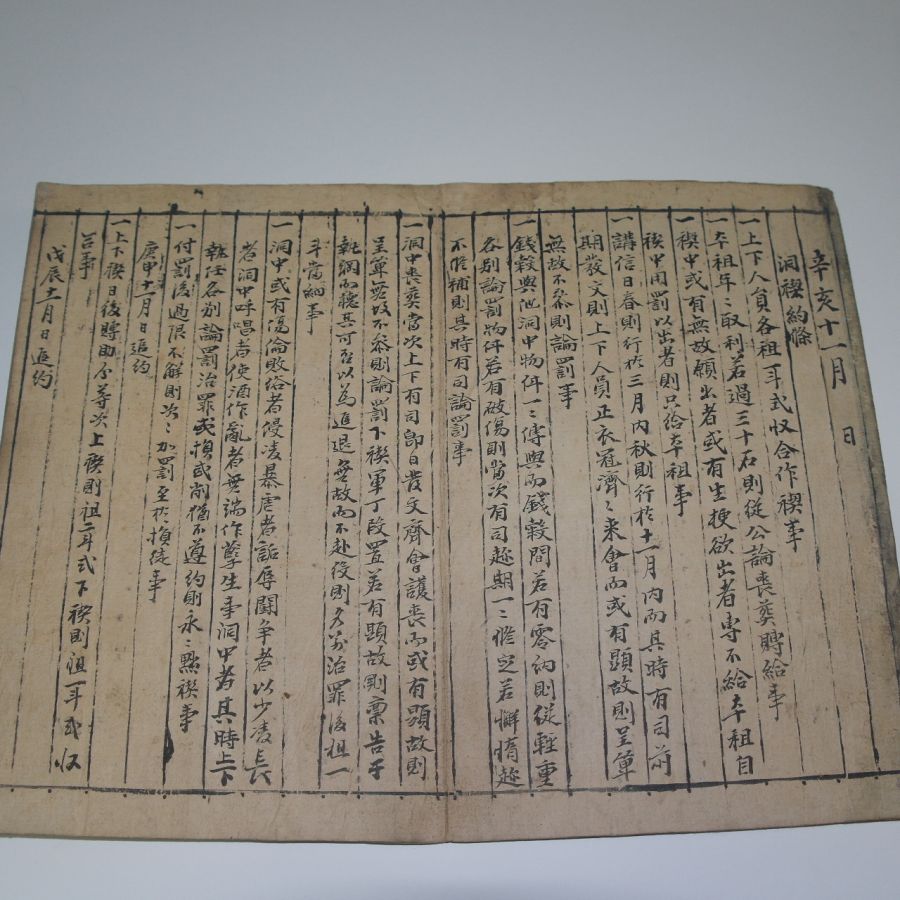 辛亥十一月 日
洞稧約條
一上下人員各租一斗式收合作稧事
一本租年〻取利若過三十石則從公論喪葬賻給事
一稧中或有無故願出者或有生梗欲出者專不給本租自
稧中用罰以出者則只給本租事
一講信日春則行於三月內秋則行於十一月內而其時有司前
期發文則上下人員正衣冠濟〻來會而或有顯故則呈單
無故不參則論罰事
一錢穀與他洞中物件一〻傳與而錢穀間若有零納則從輕重
各別論罰物件若有破傷則當次有司趂期一〻修定若懈惰趂
不修補則其時有司論罰事
一洞中喪葬當次上下有司卽日發文齊會護喪而或有顯故則
呈單無故不參則論罰下稧軍丁段置若有顯故則稟告于
執綱而聽其可否以爲進退無故而不赴役則各別治罪後租一
斗當納事
一洞中或有傷倫敗俗者侵凌暴虐者詬辱鬪爭者以少凌長
者洞中呼唱者使酒作亂者無端作孽生事洞中者其時上下
執任各別論罰治罪或損或削猶不遵約則永〻黜稧事
一付罰後過限不解則次〻加罰至於損徒事
庚申十一月日追約
一上下稧日後賻助分等次上稧則租二斗式下稧則租一斗式收
合事
戊辰十二月日追約